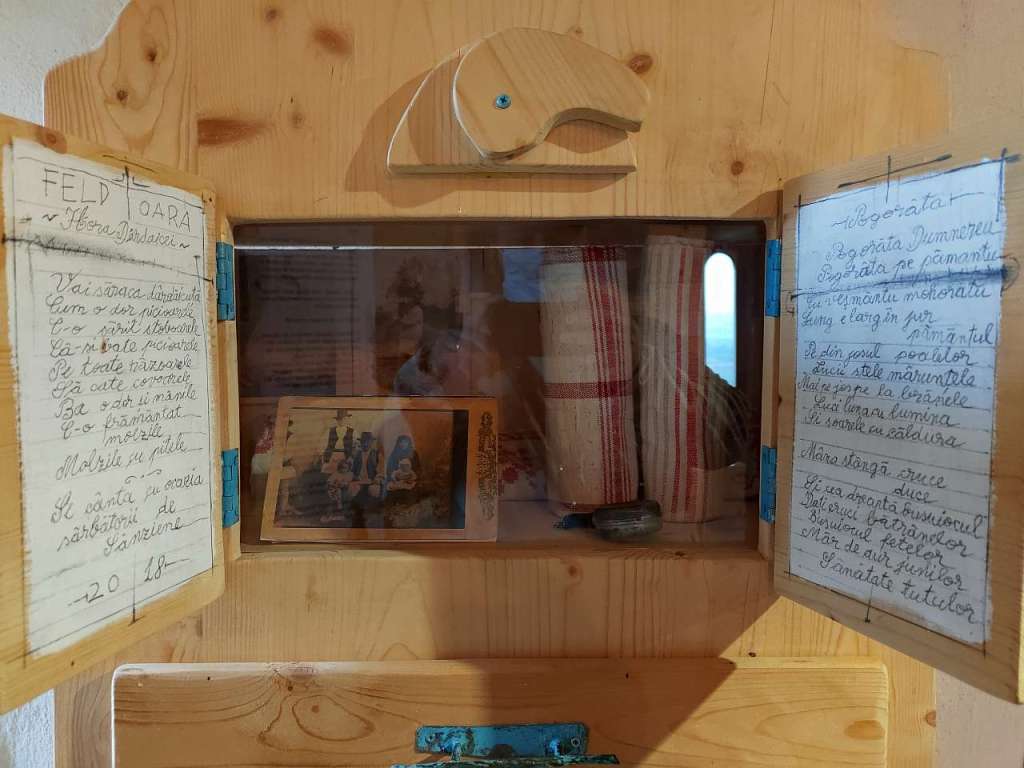 FELD OARA
~ Hora Dărdăicei ~
Văi săraca dărdăicuță
Cum o dor picioarele
C-o sărit stoboarele
Că-și bate picioarele
Pe toate răzoarele
Să cate covorele
Ba o dor și mânile
C-o frământat
molzile
Molzile cu pitele
Se cântă cu ocazia
sărbătorii de
Sânziene
20 18
Pogorâta
Pogorâta Dumnezeu
Pogorâta pe pământu
Cu veșmântu mohorâtu
Lung e larg în jur
pământul
Pe din josul poalelor
Luci stele mărunțele
Mai pe jos pe la
Luci lumina
Și soarele cu căldura
Mâna stângă cruce
duce
Și cea dreaptă busuiocul
Dați cruci bătrânelor
Busuiocul fetelor
Măr de aur junilor
Sănătate tutulor